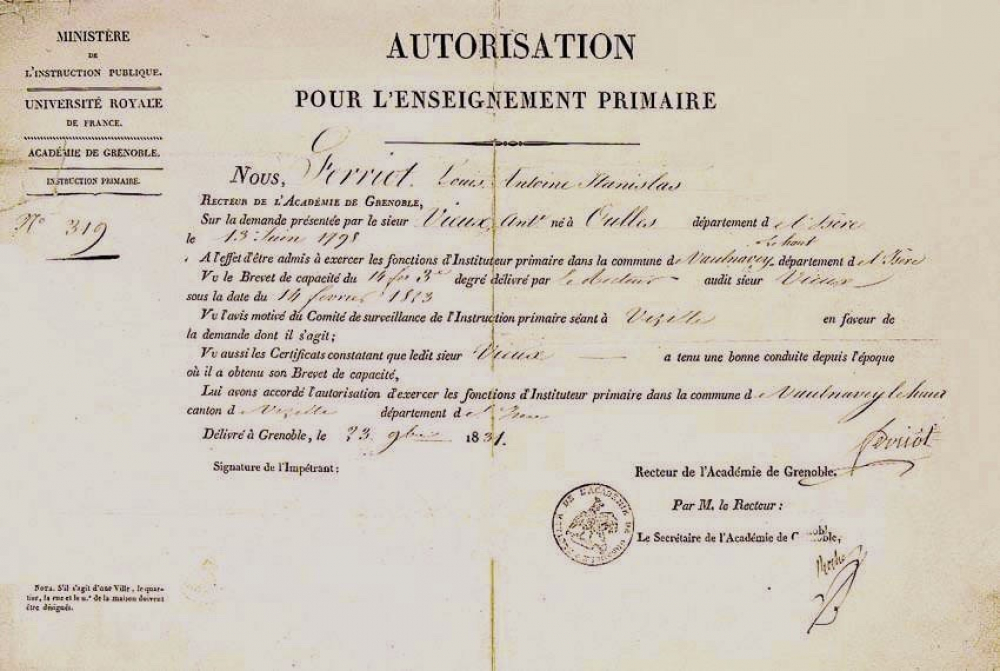 MINISTÈRE
DE
L'INSTRUCTION PUBLIQUE.
UNIVERSITÉ ROYALE
DE FRANCE.
ACADÉMIE DE GRENOBLE.
INSTRUCTION PRIMAIRE.
N° 319
AUTORISATION
POUR L'ENSEIGNEMENT PRIMAIRE
NOUS, Ferriot, Louis Antoine Stanislas
RECTEUR DE L'ACADÉMIE DE GRENOBLE,
Sur la demande présentée par le sieur Vieux, Ant.e né à Oulles département d e l'Isère
le 13 Juin 1798
le haut
A l'effet d'être admis à exercer les fonctions d'Instituteur primaire dans la commune de Vaulnavey département d e l'Isère
Vu le Brevet de capacité du 3e degré délivré par le Recteur audit sieur Vieux
sous la date du 14 février 1823
Vu l'avis motivé du Comité de surveillance de l'Instruction primaire séant à Vizille en faveur de
la demande dont il s'agit;
Vu aussi les Certificats constatant que ledit sieur Vieux a tenu une bonne conduite depuis l'époque
où il a obtenu son Brevet de capacité,
Lui avons accordé l'autorisation d'exercer les fonctions d'Instituteur primaire dans la commune d e Vaulnavey le haut
canton d e Vizille département d e l'Isère
Délivré à Grenoble, le 23 9bre 1831.
Ferriot
Signature de l'Impétrant:
Recteur de l'Académie de Grenoble.
Par M. le Recteur:
Le Secrétaire de l'Académie de Grenoble,
NOTA. S'il s'agit d'une Ville, le quar-
tier, la rue et le n.° de la maison devront
être désignés.